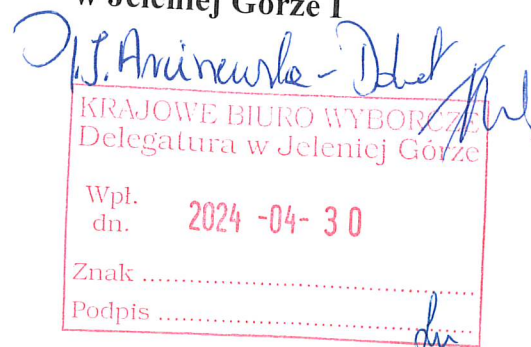 w Jeleniej Górze I
KRAJOWE BIURO WYBORCZE
Delegatura w Jeleniej Górze
Wpł.
dn. 2024 -04- 30
Znak
Podpis